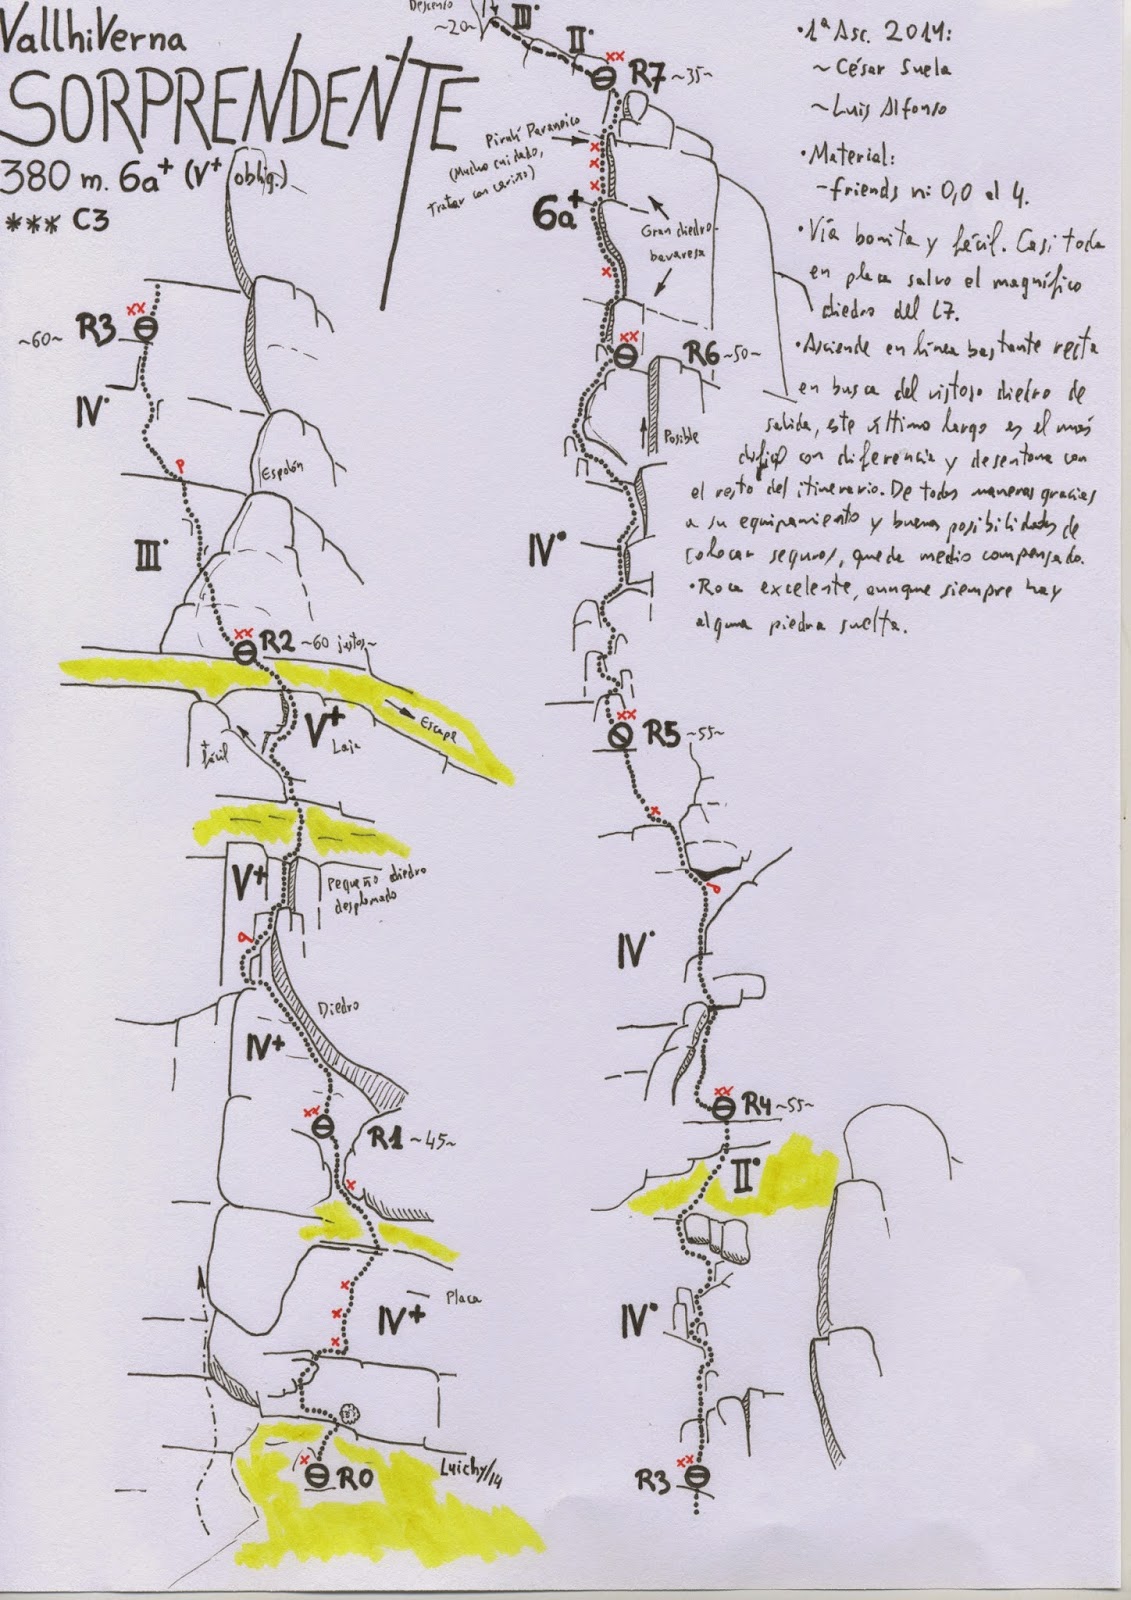 Vallhiverna
SORPRENDENTE
380 m. 6a+ (V+ oblig.)
*** C3
R3
~60~
IV°
P
Espolón
III°
R2 ~60 justos~
V+
Laja
Escape
+ fácil
V+
Pequeño diedro
desplomado
Diedro
IV+
R1 ~45~
Placa
IV+
R0
Luichy/14
Descenso
~20~
III°
II°
R7 ~35~
Pirulí Paranoico
(Mucho cuidado,
tratar con cariño)
6a+
Gran diedro-
bavaresa
R6 ~50~
Posible
IV°
R5 ~55~
IV°
R4 ~55~
II°
IV°
R3
·1ª Asc. 2014:
~ César Suela
~ Luis Alfonso
·Material:
~friends ni 0,0 al 4.
·Vía bonita y fácil. Casi toda
en placa salvo el magnífico
diedro del L7.
·Asciende en línea bastante recta
en busca del vistoso diedro de
salida, este último largo es el más
difícil con diferencia y desentona con
el resto del itinerario. De todas maneras gracias
a su equipamiento y buenas posibilidades de
colocar seguros, queda medio compensado.
·Roca excelente, aunque siempre hay
alguna piedra suelta.